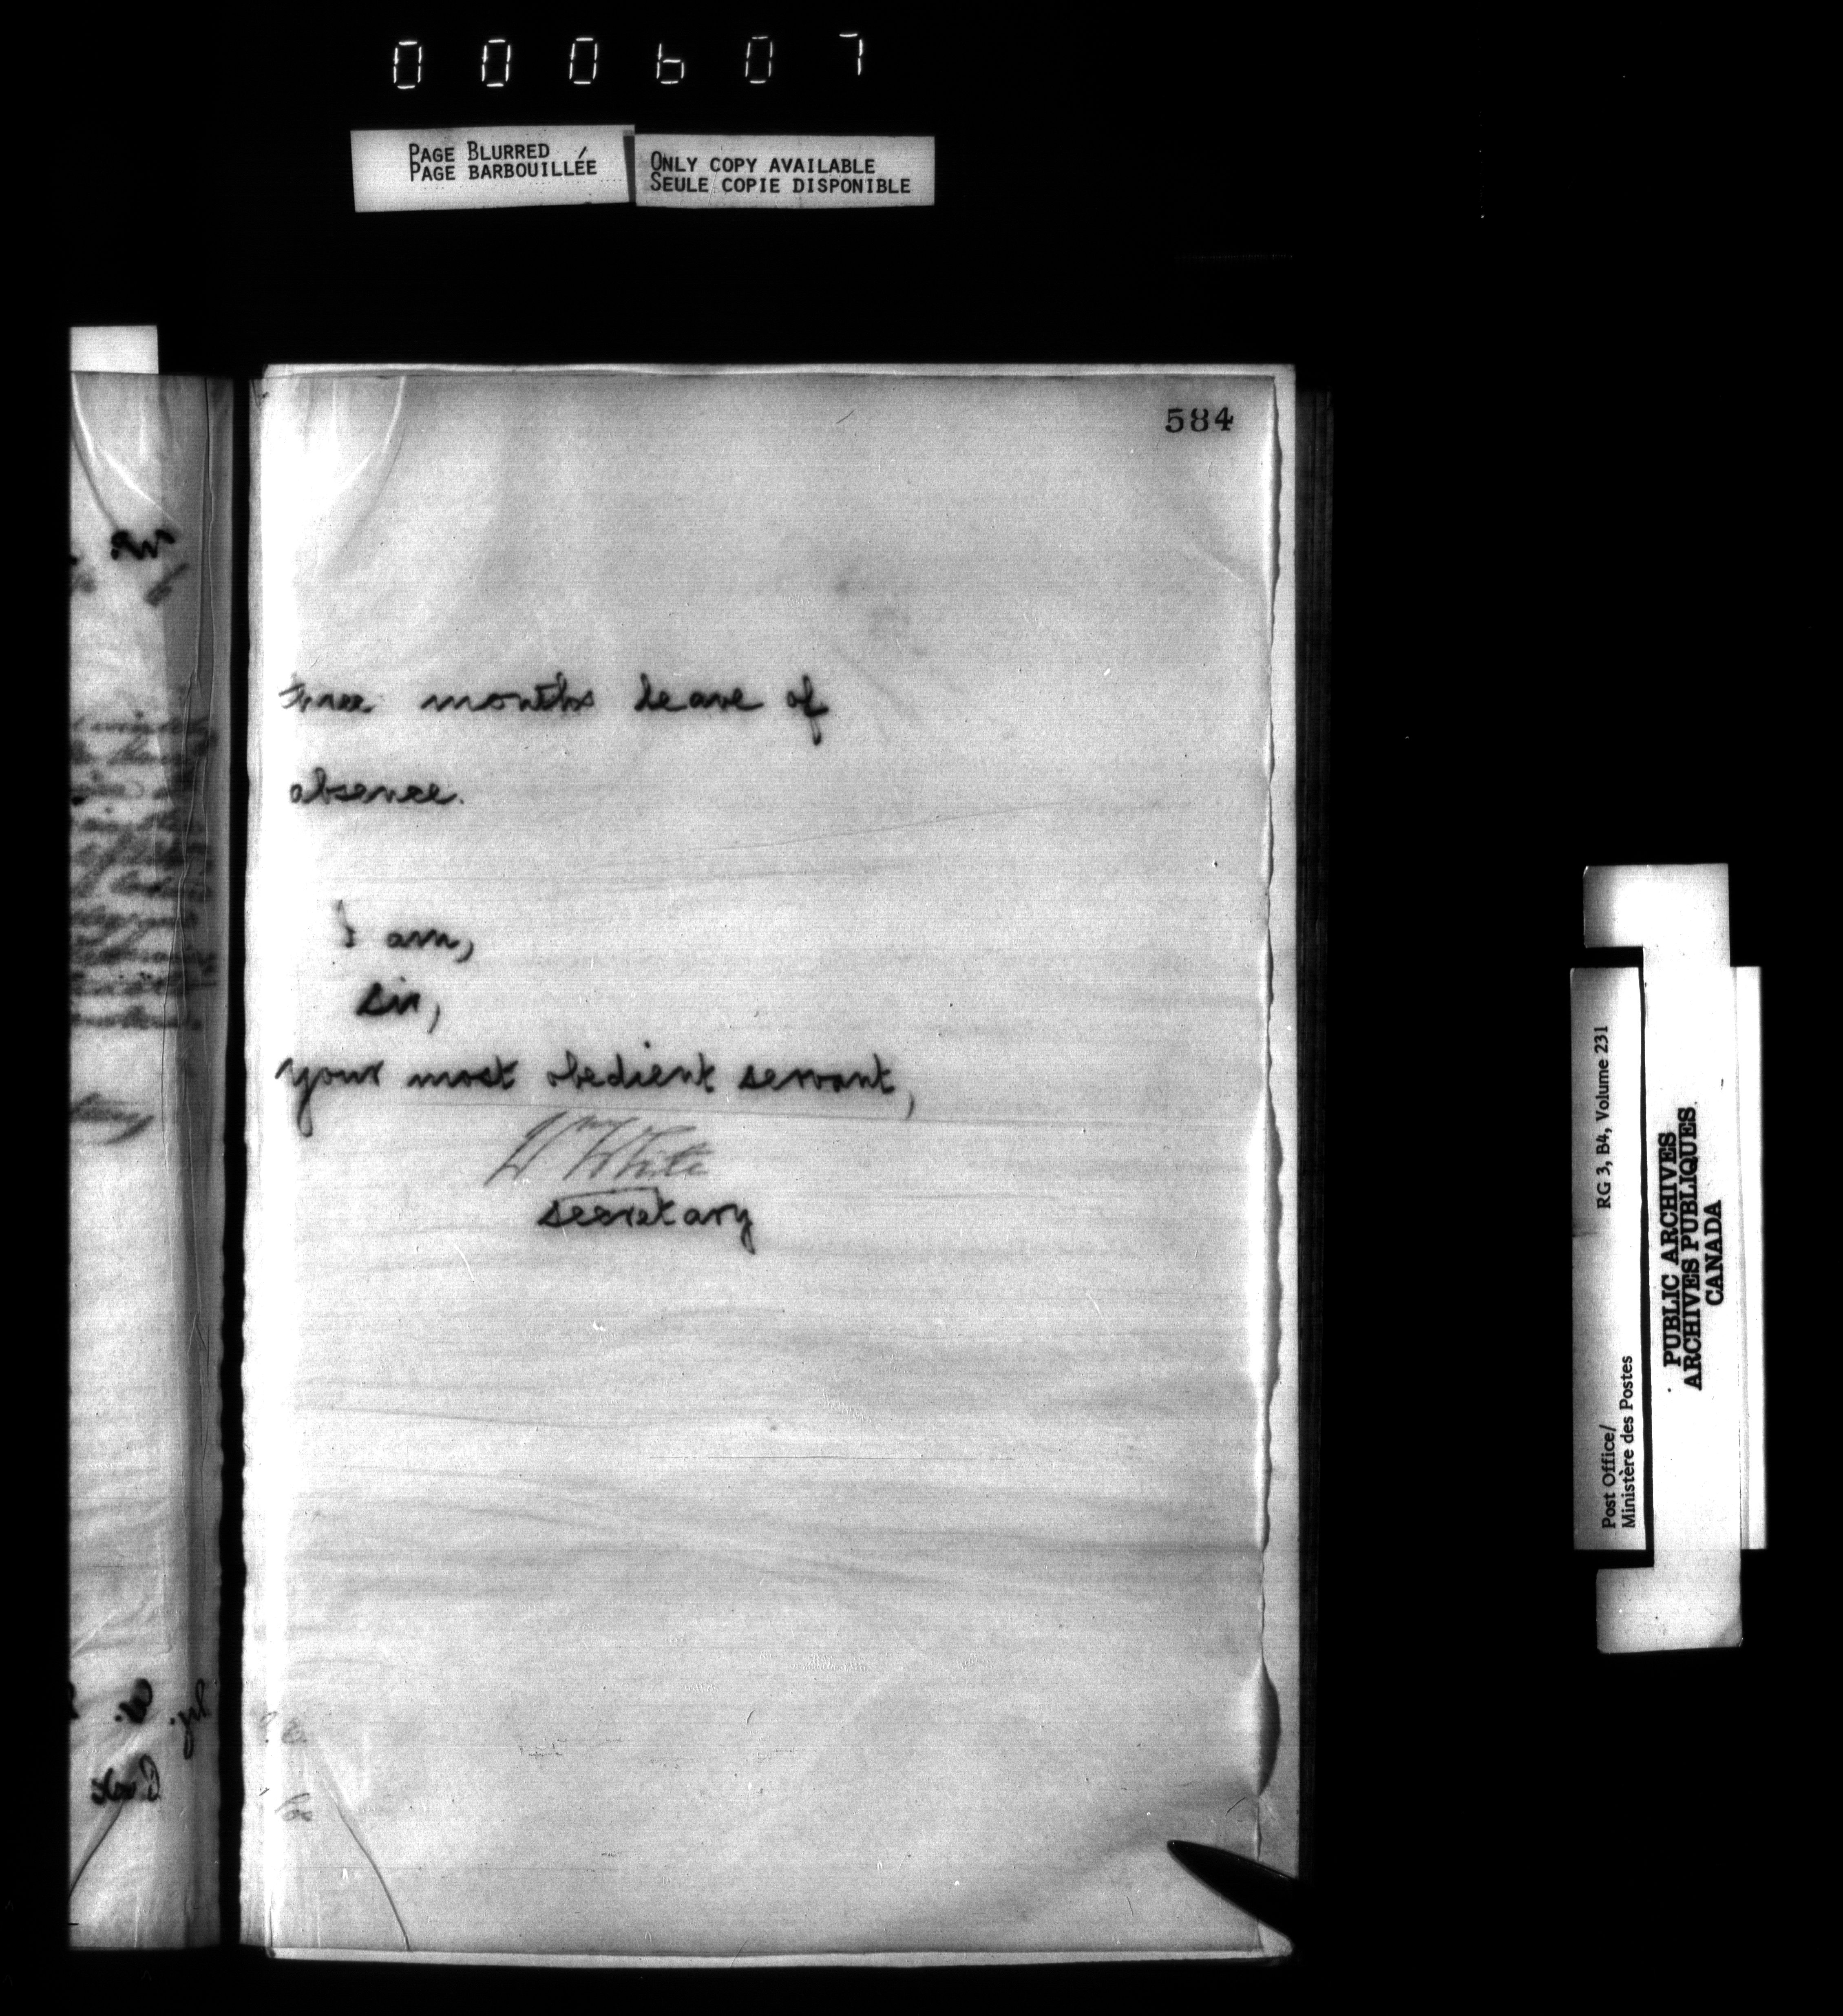 000607
PAGE BLURRED
PAGE BARBOUILLÉE
ONLY COPY AVAILABLE
SEULE COPIE DISPONIBLE
584
three months leave of
absence.
I am,
Sir,
your most obedient servant,
Wm White
Secretary
Post Office/
Ministère des Postes
RG 3, B4, Volume 231
PUBLIC ARCHIVES
ARCHIVES PUBLIQUES
CANADA